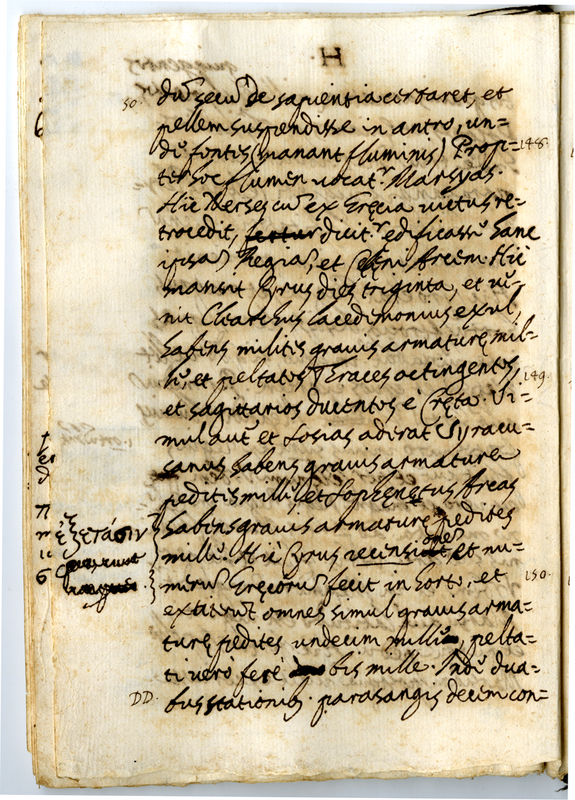 H
50. dū secū de sapientia certaret, et
pellem suspendisse in antro, un=
dè fontes (manant fluminis) Prop= 148.
tereà flumen uocat.r Marsyas.
Hic Xerses cū ex Gręcia uictus re=
trocedit, dicit.r edificassè hanc
ipsā Regiā, et Arcem. Hic
mansit Cyrus dies triginta, et ue=
nit Clearchus lacedemonius exul,
habens milites grauis armaturę mil=
lè, et peltatos Thraces octingentos, 149.
et sagittarios ducentos e Cręta. Si=
mul aut̄ et Sosias aderat Syracu=
sanus habens grauis armaturę
pedites millè, et Sophenętus Arcas
habens grauis armaturę pedites
ἐξέτασιν
millè. Hic Cyrus recensionē, et nu=
merū Gręcorū fecit in horto, et 150.
extiterūt omnes simul grauis arma=
turę pedites undecim millia, pelta=
ti uerò ferè bis mille. Indè dua=
DD. bus stationib. parasangis decem con=